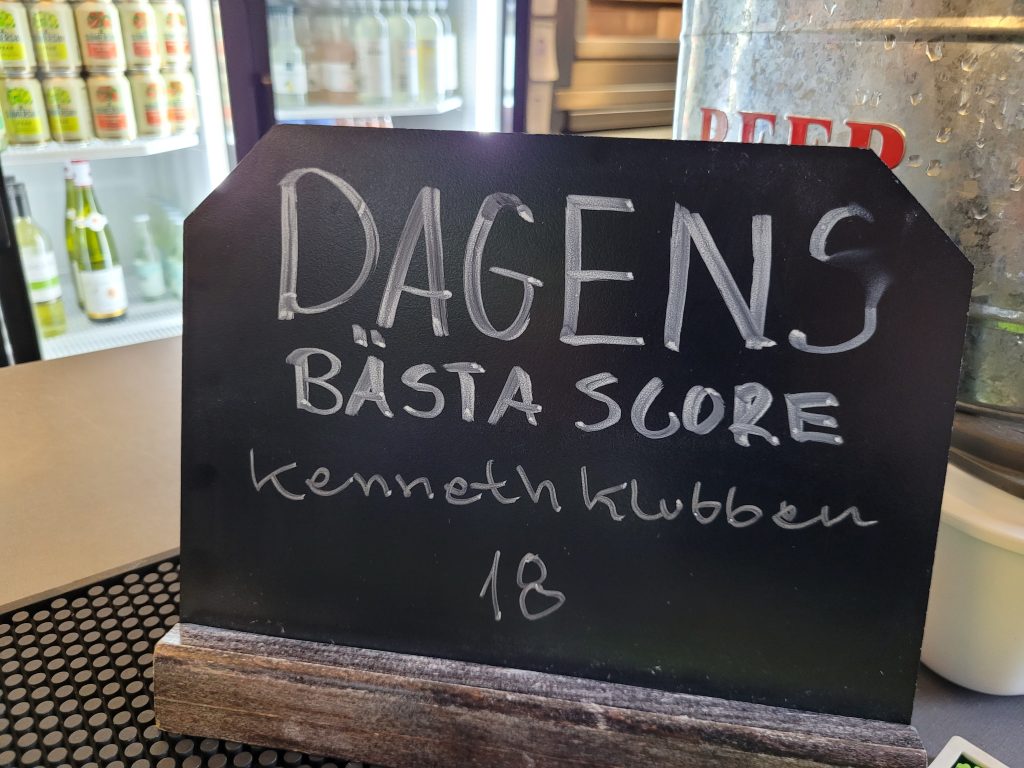 BEER
DAGENS
BÄSTA SCORE
Kenneth Klubben
18